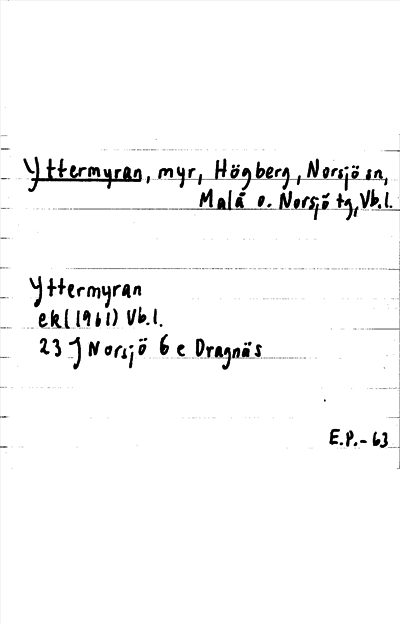 Yttermyran, myr, Högberg, Norsjö sn,
Malå o. Norsjö tg, Vb.l.
Yttermyran
ekl (1961) Vb.l.
23 J Norsjö 6 e Dragnäs
E.P.-63